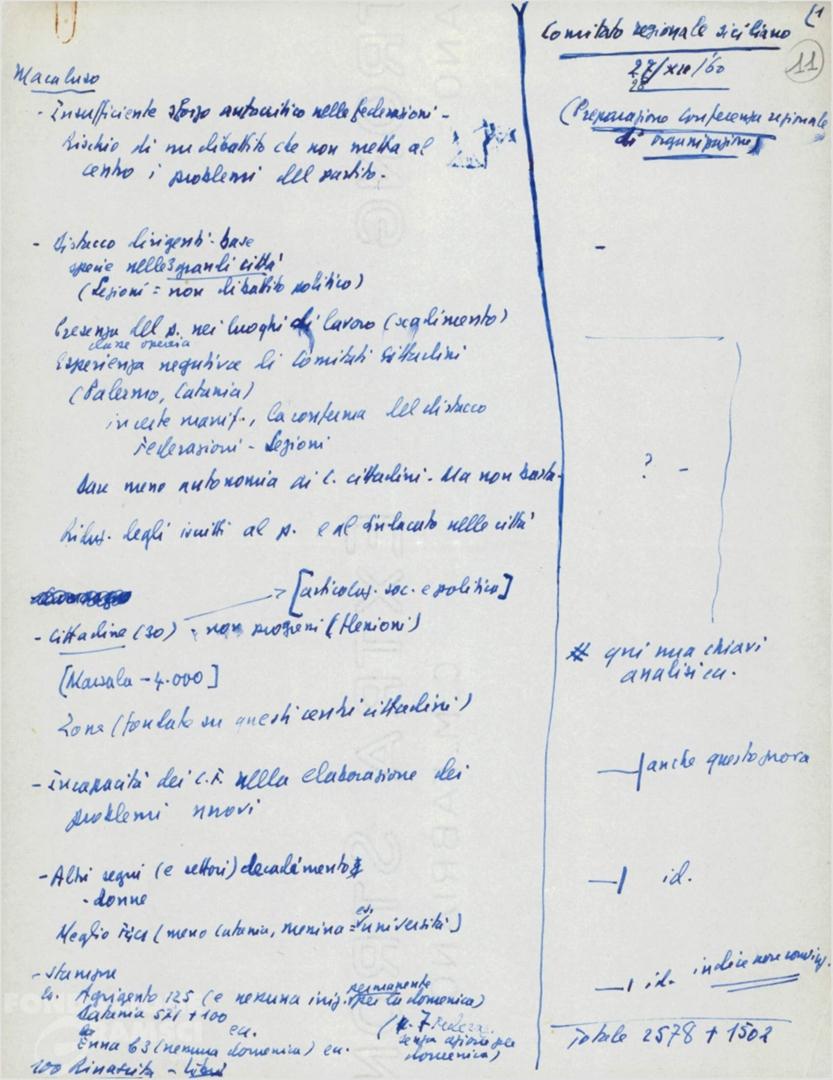 (1
Comitato regionale siciliano
27/XII/60
28
11
(Preparazione Conferenza regionale
di organizzazione)
Macaluso
- Insufficiente sforzo autocritico nelle federazioni -
Rischio di un dibattito che non metta al
centro i problemi del partito.
- Distacco dirigenti-base
specie nelle 3 grandi città
(Sezioni = non dibattito politico)
Presenza del p. nei luoghi di lavoro (scadimento)
classe operaia
Esperienza negativa di Comitati Cittadini
(Palermo, Catania)
in certe manif., la conferma del distacco
Federazioni - Sezioni
Dare meno autonomia ai C. cittadini. Ma non basta.
degli iscritti al p. e al Sindacato nelle città
→ [articolaz. soc. e politica]
- Cittadine (30) - non progressi (flessioni)
[Marsala - 4.000]
Zona (fondate su questi centri cittadini)
- Incapacità dei C.F. nella elaborazione dei
problemi nuovi
- Altri segni (e settori) decadimento
- donne
Meglio FGCI (meno Catania, Messina = es. università)
- Stampa
Agrigento 125 (e nessuna iniz. permanente per la domenica)
Catania 571 + 100
Enna 63 (nessuna domenica) ecc.
(n. 7 Federaz.
senza azione per
domenica)
100 Rinascita -
-
? -
# qui una chiara
analisi ecc.
anche questo prova
id.
id. indice non
Totale 2578 + 1502